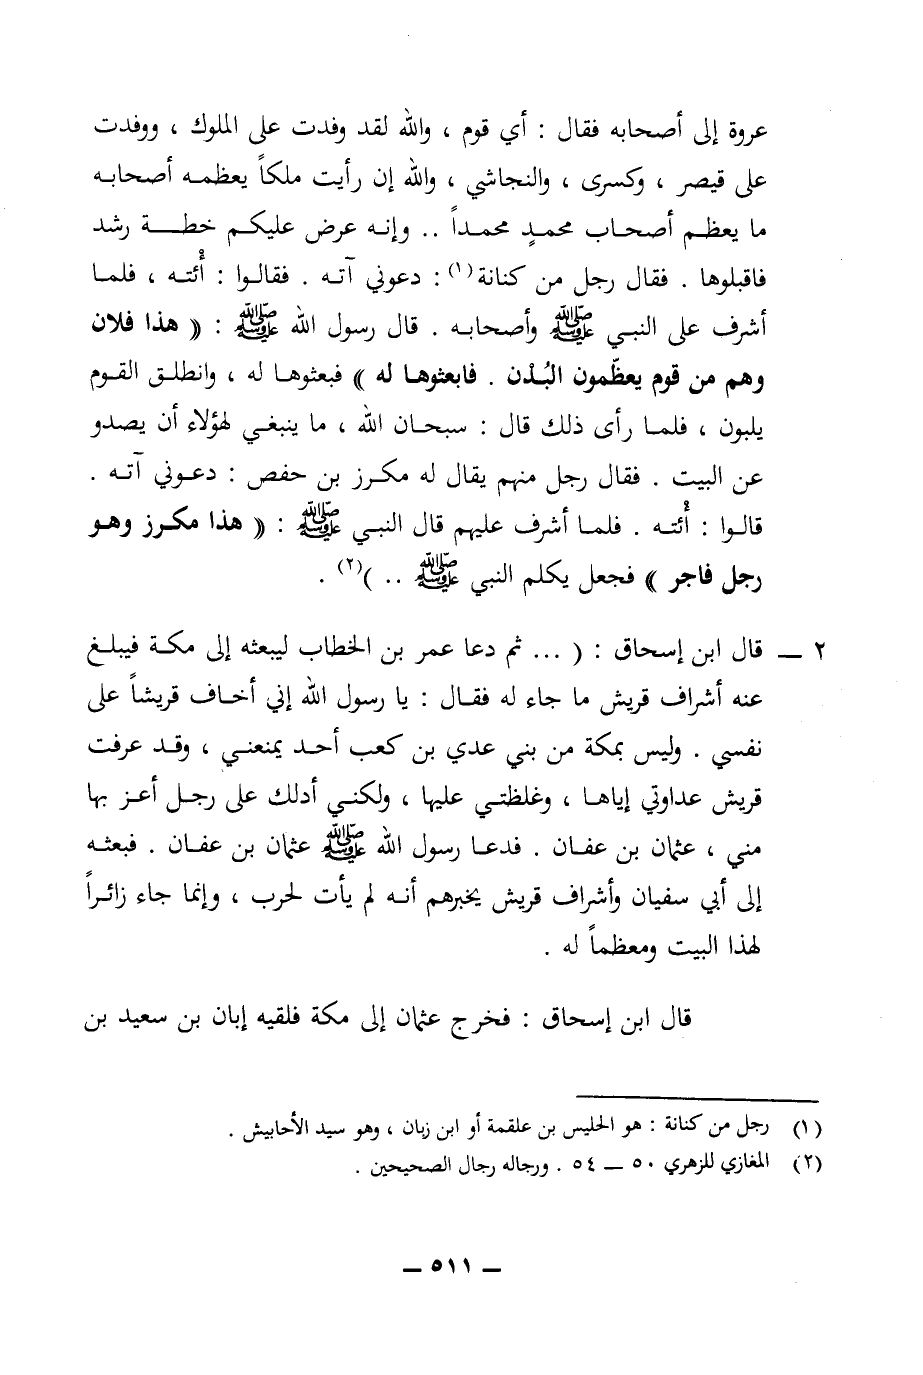 عروة إلى أصحابه فقال : أي قوم ، والله لقد وفدت على الملوك ، ووفدت
على قيصر ، وكسرى ، والنجاشي ، والله إن رأيت ملكاً يعظمه أصحابه
ما يعظم أصحاب محمدٍ محمداً .. وإنه عرض عليكم خطة رشد
فاقبلوها . فقال رجل من كنانة(١) : دعوني آته . فقالوا : أُئته ، فلما
أشرف على النبي ﷺ وأصحابه . قال رسول الله ﷺ : « هذا فلان
وهم من قوم يعظّمون البُدْن . فابعثوها له » فبعثوها له ، وانطلق القوم
يلبون ، فلما رأى ذلك قال : سبحان الله ، ما ينبغي لهؤلاء أن يصدو
عن البيت . فقال رجل منهم يقال له مكرز بن حفص : دعوني آته .
قالوا : أُئته . فلما أشرف عليهم قال النبي ﷺ : « هذا مكرز وهو
رجل فاجر » فجعل يكلم النبي ﷺ .. )(٢) .
٢ ــ قال ابن إسحاق : ( ... ثم دعا عمر بن الخطاب ليبعثه إلى مكة فيبلغ
عنه أشراف قريش ما جاء له فقال : يا رسول الله إني أخاف قريشاً على
نفسي . وليس بمكة من بني عدي بن كعب أحد يمنعني ، وقد عرفت
قريش عداوتي إياها ، وغلظتي عليها ، ولكني أدلك على رجل أعز بها
مني ، عثمان بن عفان . فدعا رسول الله ﷺ عثمان بن عفان . فبعثه
إلى أبي سفيان وأشراف قريش يخبرهم أنه لم يأت لحرب ، وإنما جاء زائراً
لهذا البيت ومعظماً له .
قال ابن إسحاق : فخرج عثمان إلى مكة فلقيه إبان بن سعيد بن
(١) رجل من كنانة : هو الحليس بن علقمة أو ابن زبان ، وهو سيد الأحابيش .
(٢) المغازي للزهري ٥٠ ــ ٥٤ . ورجاله رجال الصحيحين .
ــ ٥١١ ــ